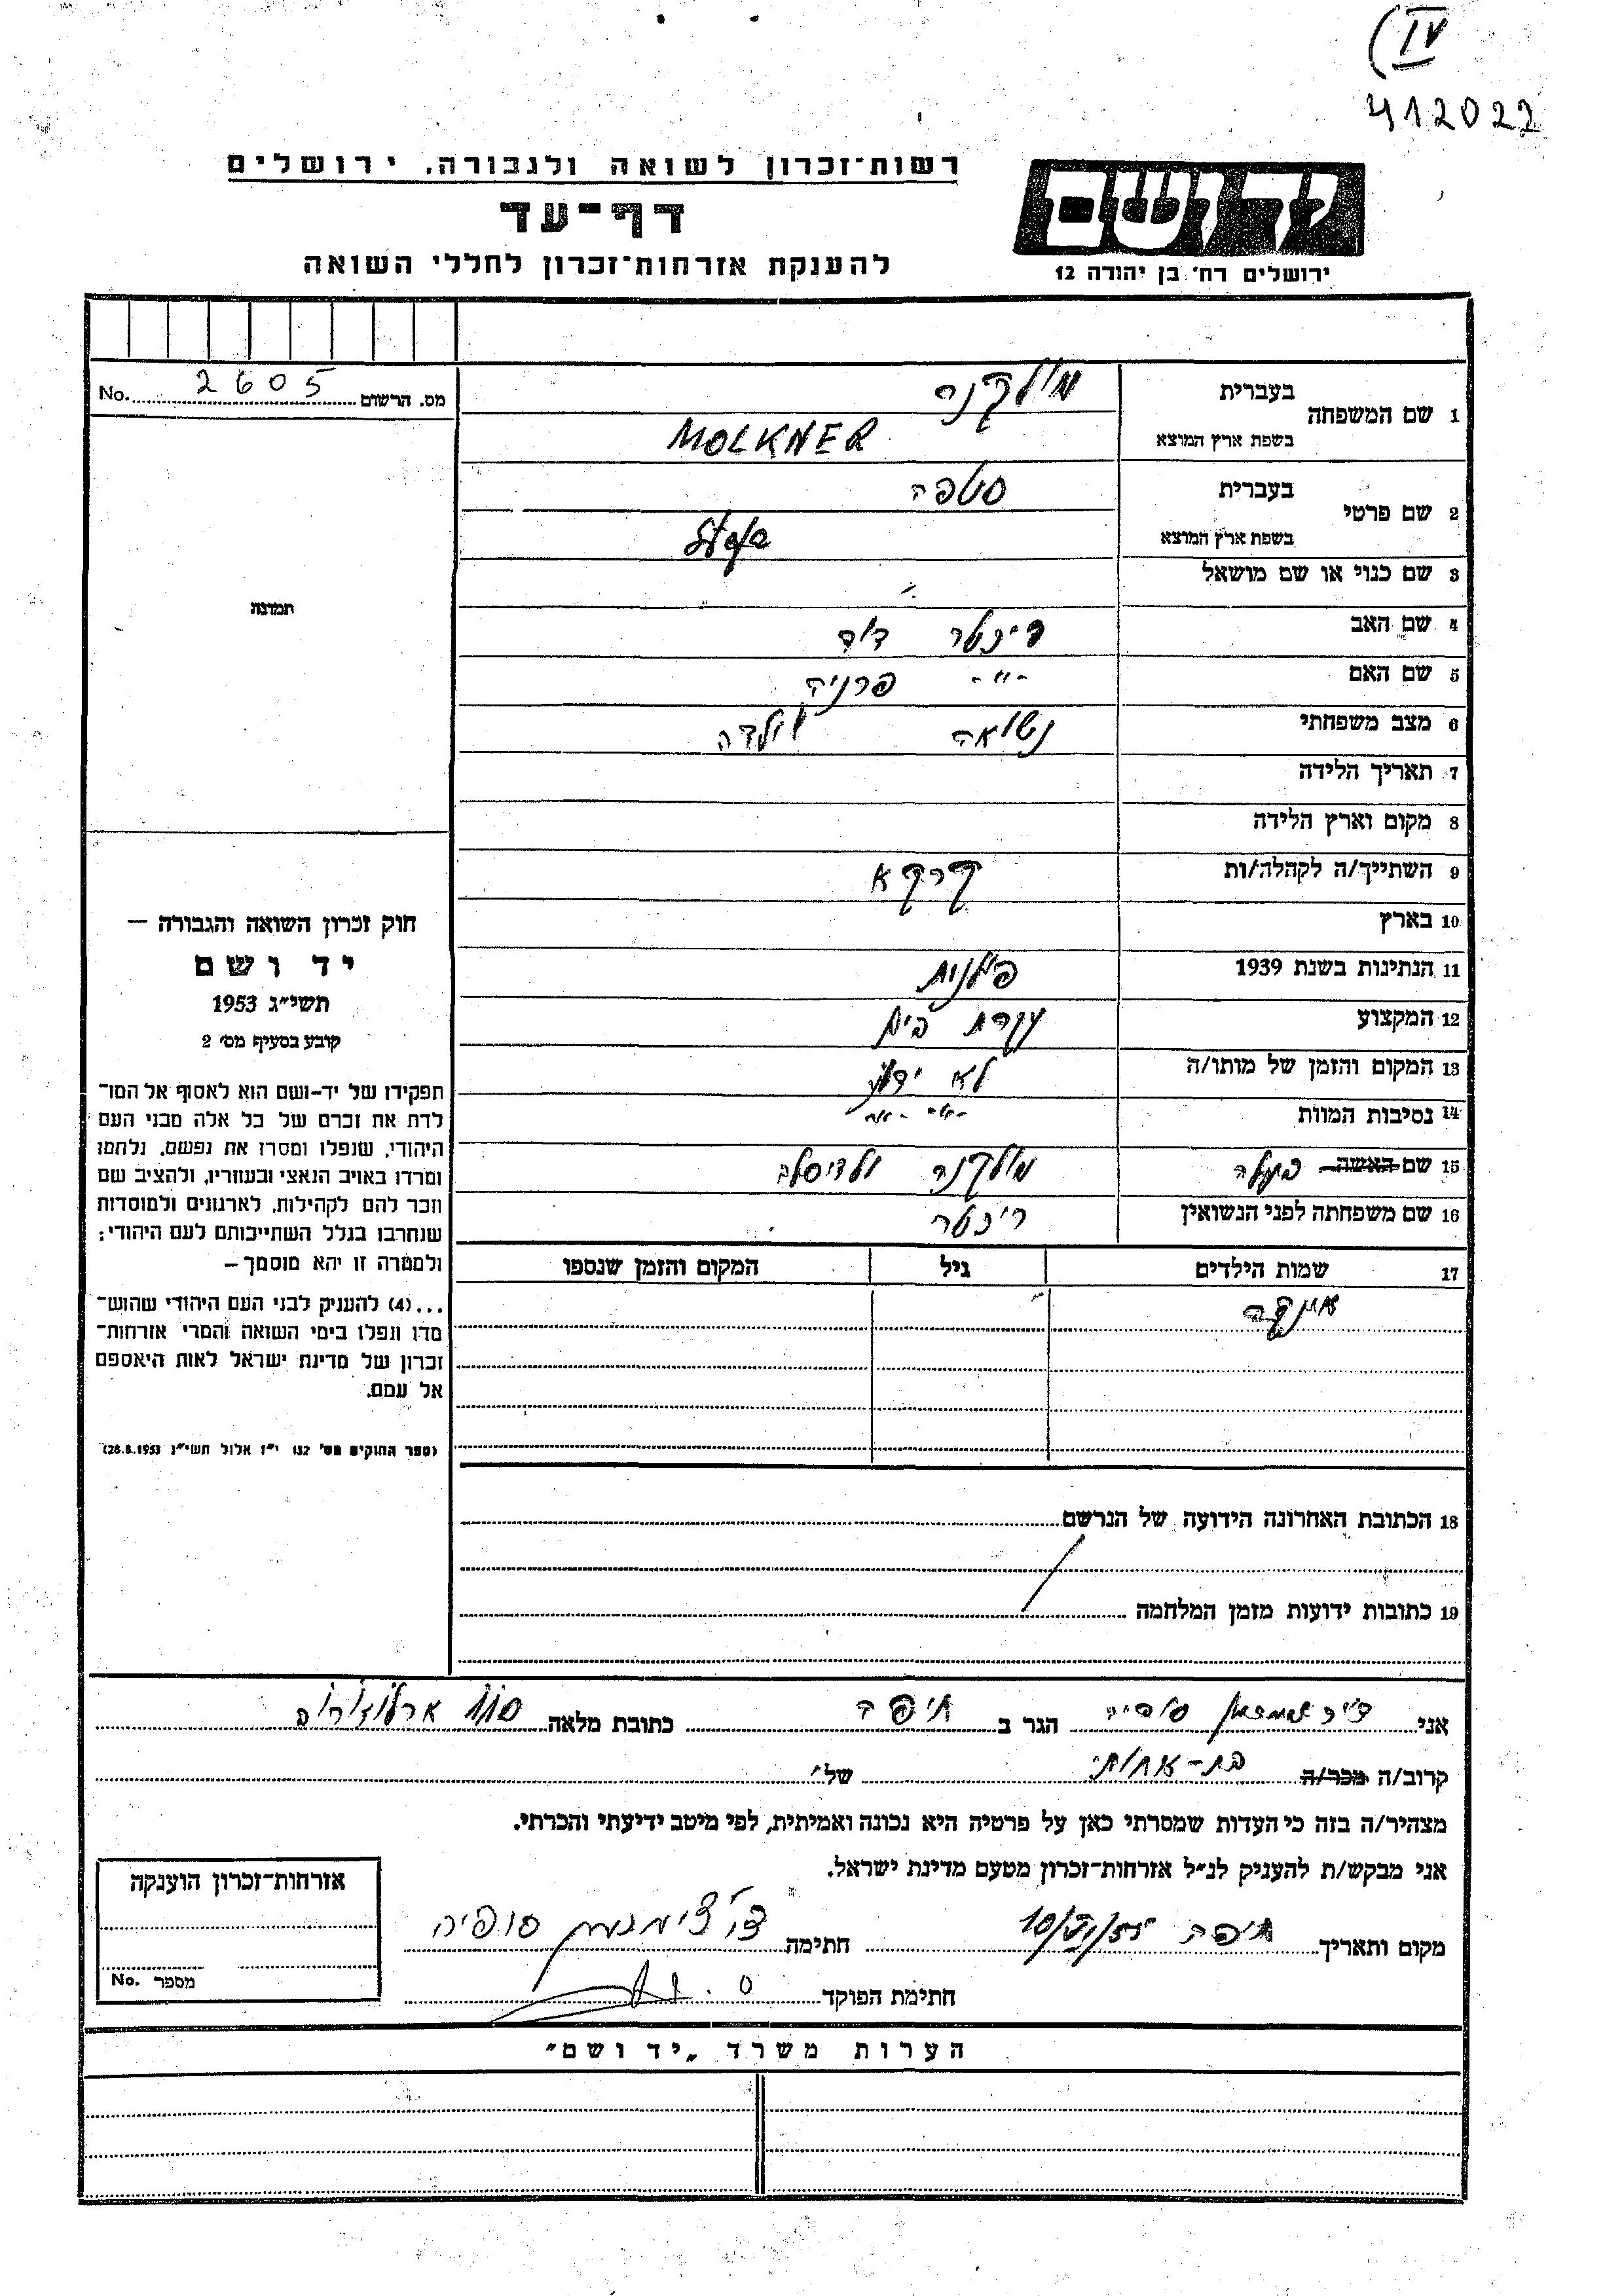 (IV
412022
רשות־זכרון לשואה ולגבורה, ירושלים
דף־עד
להענקת אזרחות־זכרון לחללי השואה
יד ושם
ירושלים רח' בן יהודה 12
מס. הרשום 2605 No.
1 שם המשפחה
בעברית מולקנר
בשפת ארץ המוצא MOLKNER
2 שם פרטי
בעברית סטפה
בשפת ארץ המוצא Stefa
3 שם כנוי או שם מושאל
4 שם האב רינטר דוד
5 שם האם -"- פרניה
6 מצב משפחתי נשואה + ילדה
7 תאריך הלידה
8 מקום וארץ הלידה
9 השתייך/ה לקהלה/ות קרקא
10 בארץ
11 הנתינות בשנת 1939 פולנית
12 המקצוע עקרת בית
13 המקום והזמן של מותו/ה לא ידוע
14 נסיבות המוות -"- -"-
15 שם האשה בעלה מולקנר ולדיסלב
16 שם משפחתה לפני הנשואין רינטר
17 שמות הילדים גיל המקום והזמן שנספו
אנקה
18 הכתובת האחרונה הידועה של הנרשם
19 כתובות ידועות מזמן המלחמה
תמונה
חוק זכרון השואה והגבורה –
יד ושם
תשי"ג 1953
קובע בסעיף מס' 2
תפקידו של יד-ושם הוא לאסוף אל המו־
לדת את זכרם של כל אלה מבני העם
היהודי, שנפלו ומסרו את נפשם, נלחמו
ומרדו באויב הנאצי ובעוזריו, ולהציב שם
וזכר להם לקהילות, לארגונים ולמוסדות
שנחרבו בגלל השתייכותם לעם היהודי;
ולמטרה זו יהא מוסמך –
...(4) להעניק לבני העם היהודי שהוש־
מדו ונפלו בימי השואה והמרי אזרחות־
זכרון של מדינת ישראל לאות היאספם
אל עמם.
(ספר החוקים מס' 132 י"ז אלול תשי"ג 28.8.1953)
אני סופיה הגר ב חיפה כתובת מלאה ארלוזורוב
קרוב/ה מכר/ה בת-אחותי של
מצהיר/ה בזה כי העדות שמסרתי כאן על פרטיה היא נכונה ואמיתית, לפי מיטב ידיעתי והכרתי.
אני מבקש/ת להעניק לנ"ל אזרחות־זכרון מטעם מדינת ישראל.
מקום ותאריך חיפה 10/VI/55 חתימה סופיה
חתימת הפוקד
אזרחות־זכרון הוענקה
מספר No.
הערות משרד „יד ושם"